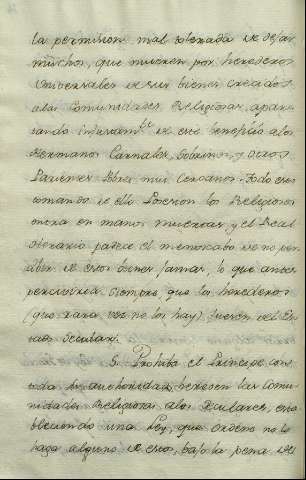 la permision mal tolerada de dejar
muchos, que mueren por herederos
universales de sus bienes creados
a las Comunidades Religiosas, apar-
tando injustam.te de este beneficio a los
Hermanos Carnales, Sobrinos, y otros
Parientes Pobres mui Cercanos. Todo esto
tomando de ello Posesion las Religiones
entra en manos muertas, y el Real
Herario padece el menoscabo de no per-
cibir de estos bienes jamas, lo que antes
percivirea siempre que los herederos
(que rara vez no los hay) fuesen del Es-
tado Secular.
5. Prohiba el Principe con
toda su authoridad, hereden las Comu-
nidades Religiosas a los Seculares, esta-
bleciendo una Ley, que ordene no lo
haga alguno de estos, bajo la pena de